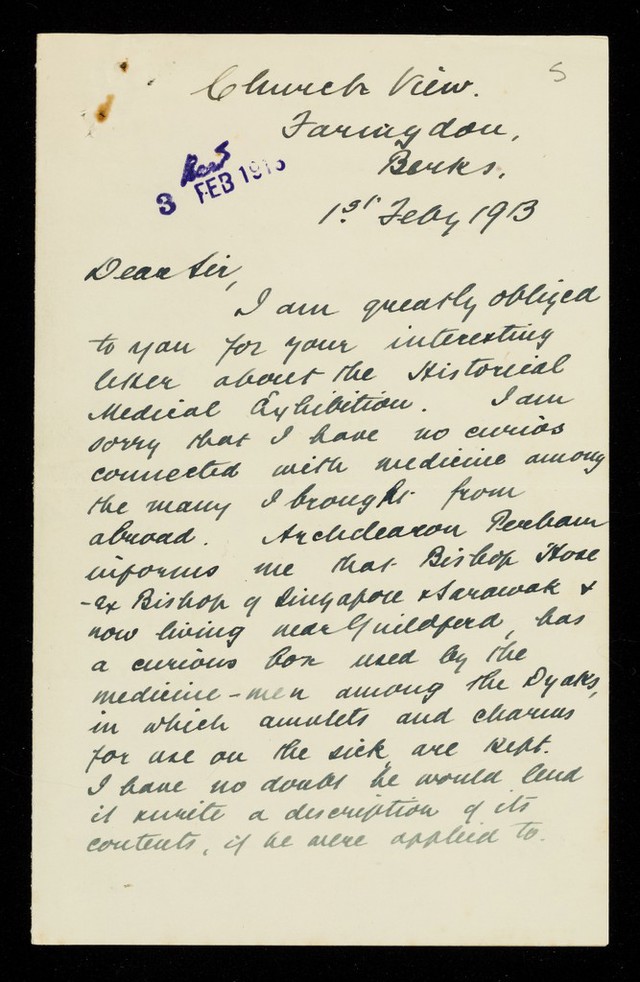 5
Church View.
Faringdon,
Berks.
Recd
3 FEB 1913
1st Feby 1913
Dear Sir,
I am greatly obliged
to you for your interesting
letter about the Historical
Medical Exhibition. I am
sorry that I have no curios
connected with medicine among
the many I brought from
abroad. Archdeacon Perham
informs me that Bishop Hose
- Ex Bishop of Singapore & Sarawak &
now living near Guildford, has
a curious box used by the
medicine-men among the Dyaks,
in which amulets and charms
for use on the sick, are kept.
I have no doubt he would lend
it & write a description of its
contents, if he were applied to.